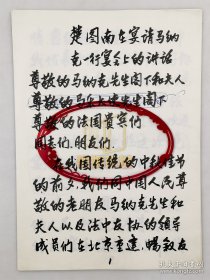 楚图南在宴请马纳
克一行宴会上的讲话
尊敬的马纳克先生阁下和夫人
尊敬的马先生阁下
尊敬的法国贵宾们
同志们、朋友们:
在我国传统的中秋佳节
的前夕,我们同中国人民尊
敬的老朋友马纳克先生和
夫人以及法中友协的领导
成员们在北京重逢,畅叙友
1